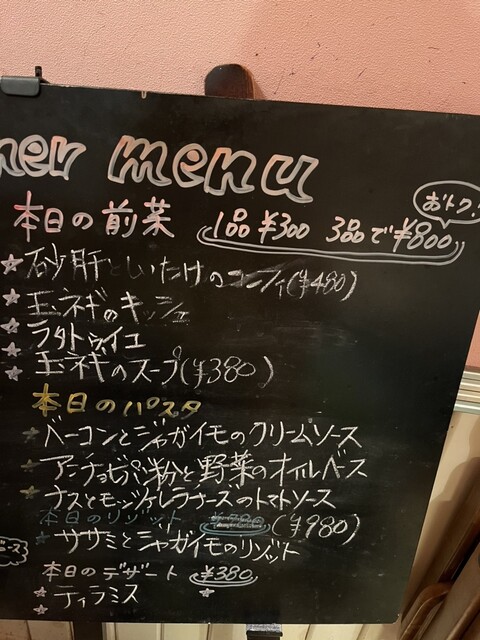 ner menu
おトク!
本日の前菜 1品¥300 3品で¥800
★砂肝としいたけのコンフィ(¥480)
★玉ネギのキッシュ
★ラタトゥイユ
★玉ネギのスープ(¥380)
本日のパスタ
★ベーコンとジャガイモのクリームソース
★アンチョビパン粉と野菜のオイルベース
★ナスとモッツァレラチーズのトマトソース
本日のリゾット (¥980)
★ササミとジャガイモのリゾット
本日のデザート ¥380
★ティラミス ★
★